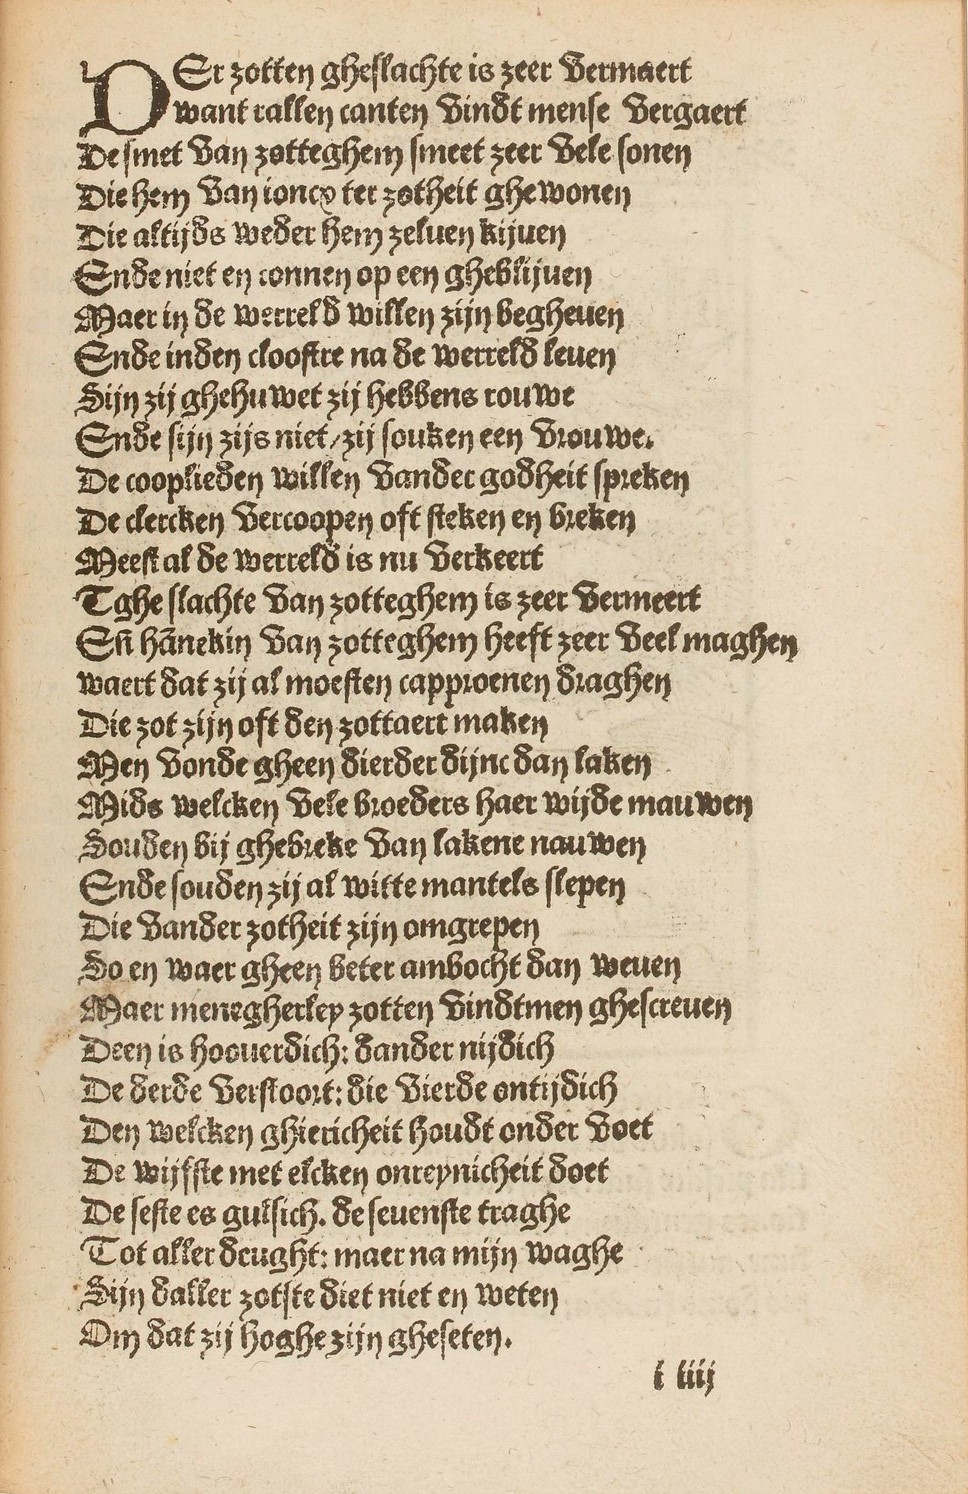 DEr zotten gheslachte is zeer vermaert
want tallen canten vindt mense vergaert
De smet van zotteghem smeet zeer vele sonen
Die hem van ioncx ter zotheit ghewonen
Die altijds weder hem zeluen kijuen
Ende niet en connen op een gheblijuen
Maer in de werreld willen zijn begheuen
Ende inden cloostre na de werreld leuen
Sijn zij ghehuwet zij hebbens rouwe
Ende sijn zijs niet/zij souken een vrouwe.
De cooplieden willen vander godheit spreken
De clercken vercoopen oft steken en breken
Meest al de werreld is nu verkeert
Tghe slachte van zotteghem is zeer vermeert
En̄ hānekin van zotteghem heeft zeer veel maghen
waert dat zij al moesten capproenen draghen
Die zot zijn oft den zottaert maken
Men vonde gheen dierder dijnc dan laken
Mids welcken vele broeders haer wijde mauwen
Souden bij ghebreke van lakene nauwen
Ende souden zij al witte mantels slepen
Die vander zotheit zijn omgrepen
So en waer gheen beter ambocht dan weuen
Maer menegherley zotten vindtmen ghescreuen
Deen is hoouerdich: dander nijdich
De derde verstoort: die vierde ontijdich
Den welcken ghiericheit houdt onder voet
De vvijfste met elcken onreynicheit doet
De seste es gulsich. de seuenste traghe
Tot aller deught: maer na mijn waghe
Sijn daller zotste diet niet en weten
Om dat zij hoghe zijn gheseten.
l iiij